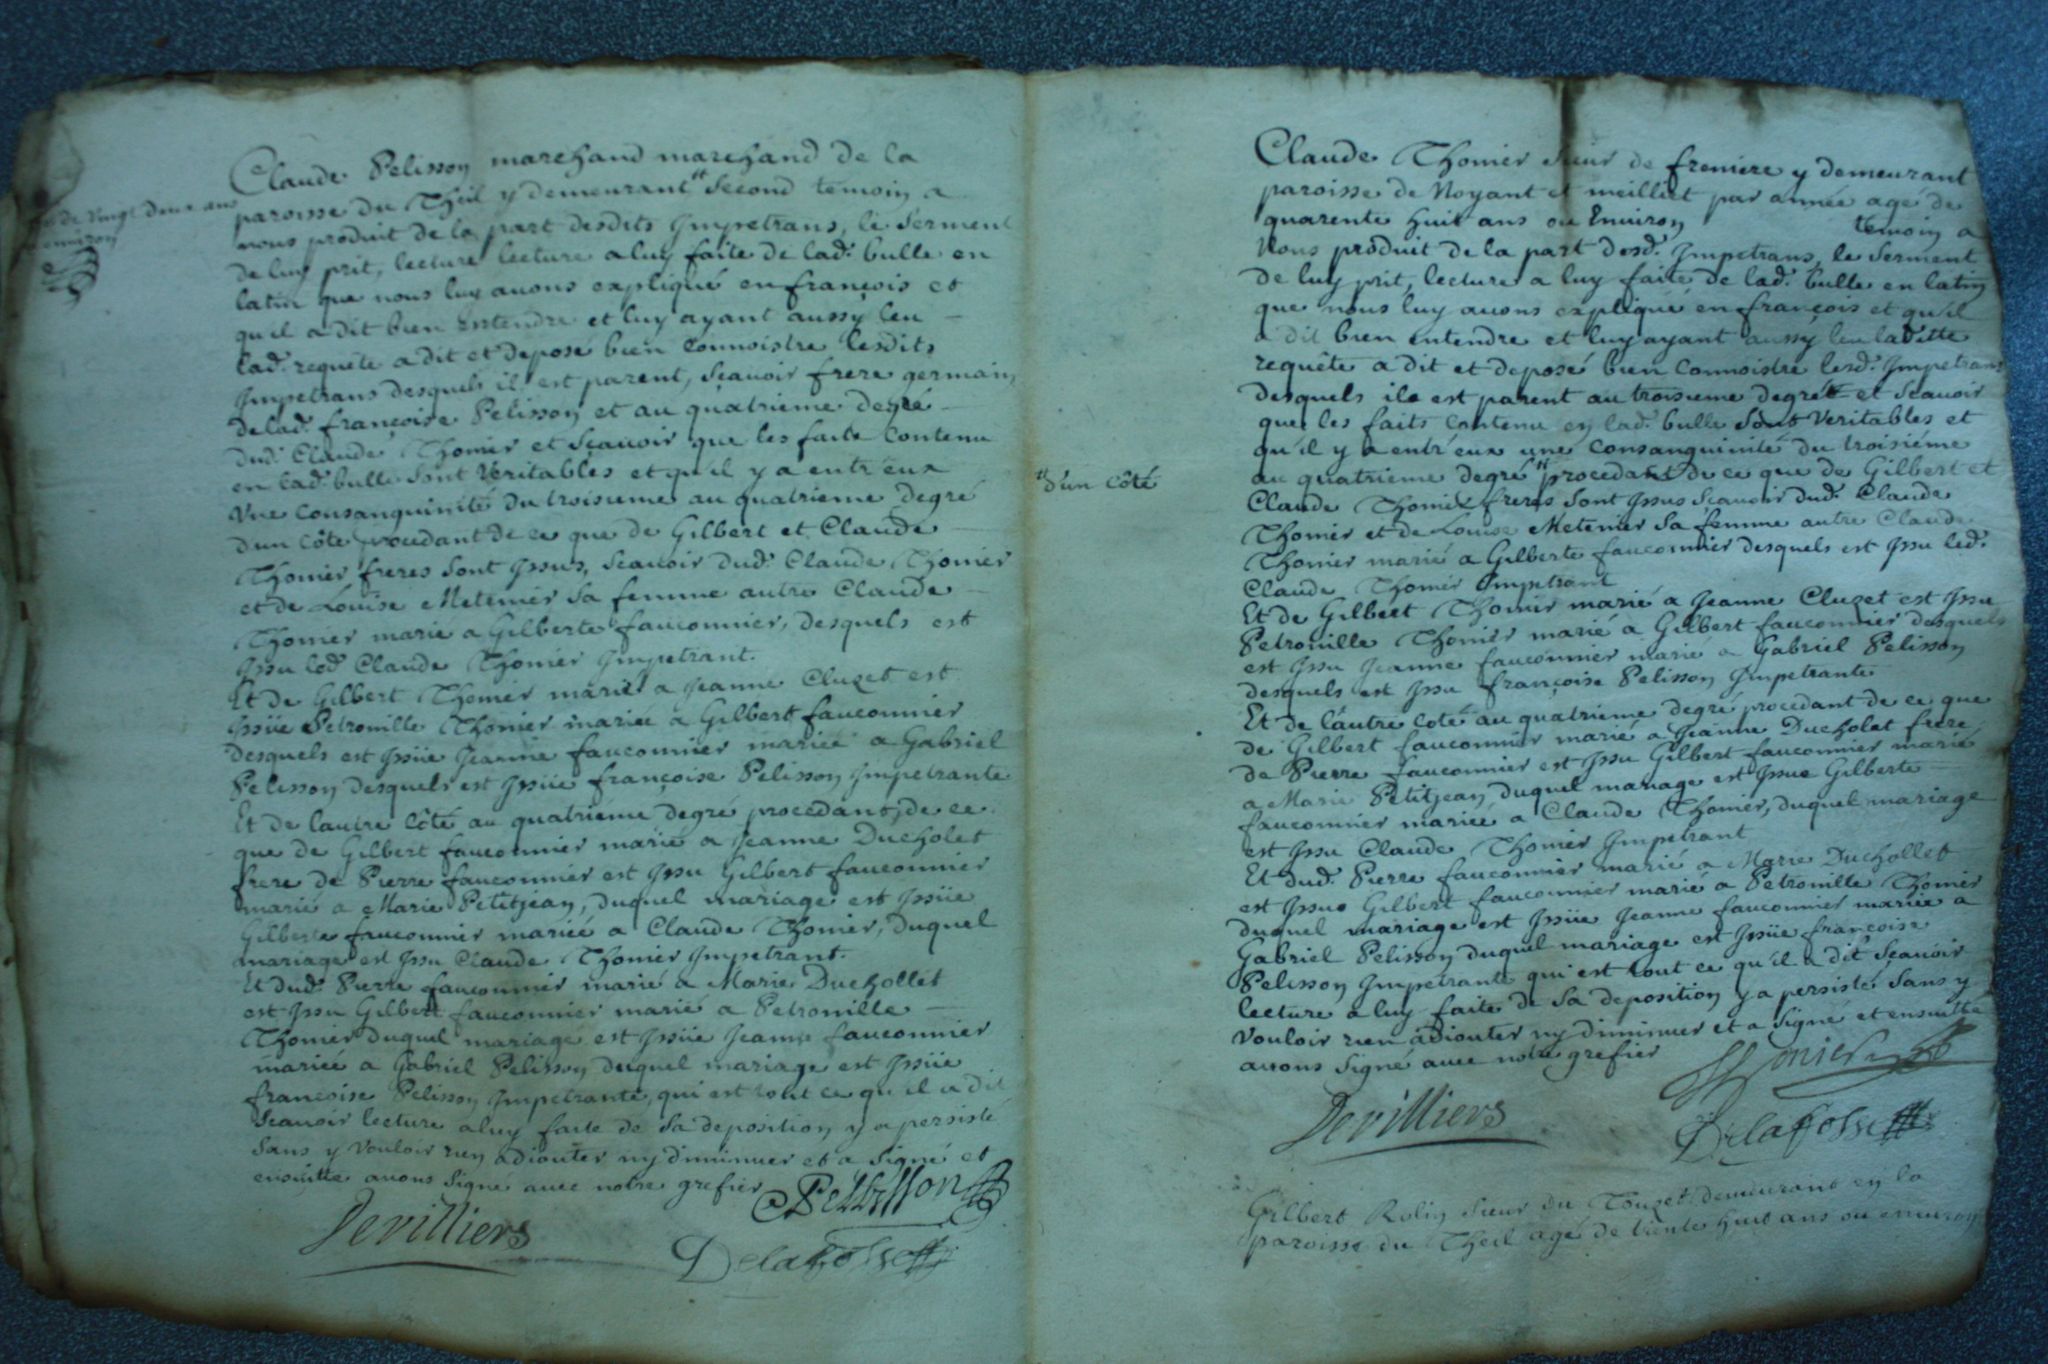 Claude Pelisson marchand marchand de la
paroisse du Theil y demeurant # second temoin a
de vingt deux ans
environ
nous produit de la part desdits Impetrans, le serment
de luy prit, lecture lecture a luy faite de lad. bulle en
latin que nous luy avons expliqué en françois et
qu'il a dit bien entendre et luy ayant aussy leu
lad. requête a dit et deposé bien connoistre lesdits
Impetrans desquels il est parent, sçavoir frere germain
de lad. françoise Pelisson et au quatrieme degré
dud. Claude Thonier et sçavoir que les faits contenu
en lad. bulle sont veritables et qu'il y a entr'eux
vne consanguinité du troisieme au quatrieme degré
d'un côté procedant de ce que de Gilbert et Claude
Thonier freres sont Issus, sçavoir dud. Claude Thonier
et de Louise Metenier sa femme autre Claude
Thonier marié a Gilberte fauconnier, desquels est
Issu led. Claude Thonier Impetrant.
Et de Gilbert Thonier marié a Jeanne Cluzet est
Issüe Petronille Thonier mariée a Gilbert fauconnier
desquels est Issüe Jeanne fauconnier mariée a Gabriel
Pelisson desquels est Issüe françoise Pelisson Impetrante
Et de l'autre côté au quatriéme degré procedant, de ce
que de Gilbert fauconnier marié a Jeanne Ducholet
frere de Pierre fauconnier est Issu Gilbert fauconnier
marié a Marie Petitjean, duquel mariage est Issüe
Gilberte fauconnier mariée a Claude Thonier, duquel
mariage est Issu Claude Thonier Impetrant.
Et dud. Pierre fauconnier marié a Marie Duchollet
est Issu Gilbert fauconnier marié a Petronille
Thonier duquel mariage est Issüe Jeanne fauconnier
mariée a Gabriel Pelisson duquel mariage est Issüe
françoise Pelisson Impetrante, qui est tout ce qu'il a dit
sçavoir lecture a luy faite de sa deposition y a persisté
sans y vouloir rien adiouter ny diminuer et a signé et
ensuitte avons signé avec notre grefier
Devilliers
Delafosse
Claude Thonier sieur de freniere y demeurant
paroisse de Noyant et meilliet par année agé de
quarente huit ans ou Environ temoin a
Nous produit de la part desd. Impetrans, le serment
de luy prit, lecture a luy faite de lad. bulle en latin
que nous luy avons expliqué en françois et qu'il
a dit bien entendre et luy ayant aussy leu laditte
requête a dit et deposé bien connoistre lesd. Impetrans
desquels ils est parent au troisieme degré et sçavoir
que les faits contenu en lad. bulle sont veritables et
qu'il y a entr'eux une consanguinité du troisiéme
au quatrieme degré # procedant de ce que de Gilbert et
# d'un côté
Claude Thonier freres sont Issus sçavoir dud. Claude
Thonier et de Louise Metenier sa femme autre Claude
Thonier marié a Gilberte fauconnier desquels est Issu led.
Claude Thonier Impetrant
Et de Gilbert Thonier marié a Jeanne Cluzet est Issu
Petronille Thonier marié a Gilbert fauconnier desquels
est Issu Jeanne fauconnier marie a Gabriel Pelisson
desquels est Issu françoise Pelisson Impetrante
Et de l'autre coté au quatrieme degré procedant de ce que
de Gilbert fauconnier marié a Jeanne Ducholet frere
de Pierre fauconnier est Issu Gilbert fauconnier marié
a Marie Petitjean, duquel mariage est Issue Gilberte
fauconnier mariée a Claude Thonier, duquel mariage
est Issu Claude Thonier Impetrant
Et dud. Pierre fauconnier marié a Marie Duchollet
est Issue Gilbert fauconnier marié a Petronille Thonier
duquel mariage est Issüe Jeanne fauconnier mariée a
Gabriel Pelisson duquel mariage est Issüe françoise
Pelisson Impetrante qui est tout ce qu'il a dit sçavoir
lecture a luy faite de sa deposition y a persisté sans y
vouloir rien adiouter ny diminuer et a signé et ensuitte
avons signé avec notre grefier
Thonier
Devilliers
Delafosse
Gilbert Rolin sieur du Touzet demeurant en la
paroisse du Theil agé de trente huit ans ou environ